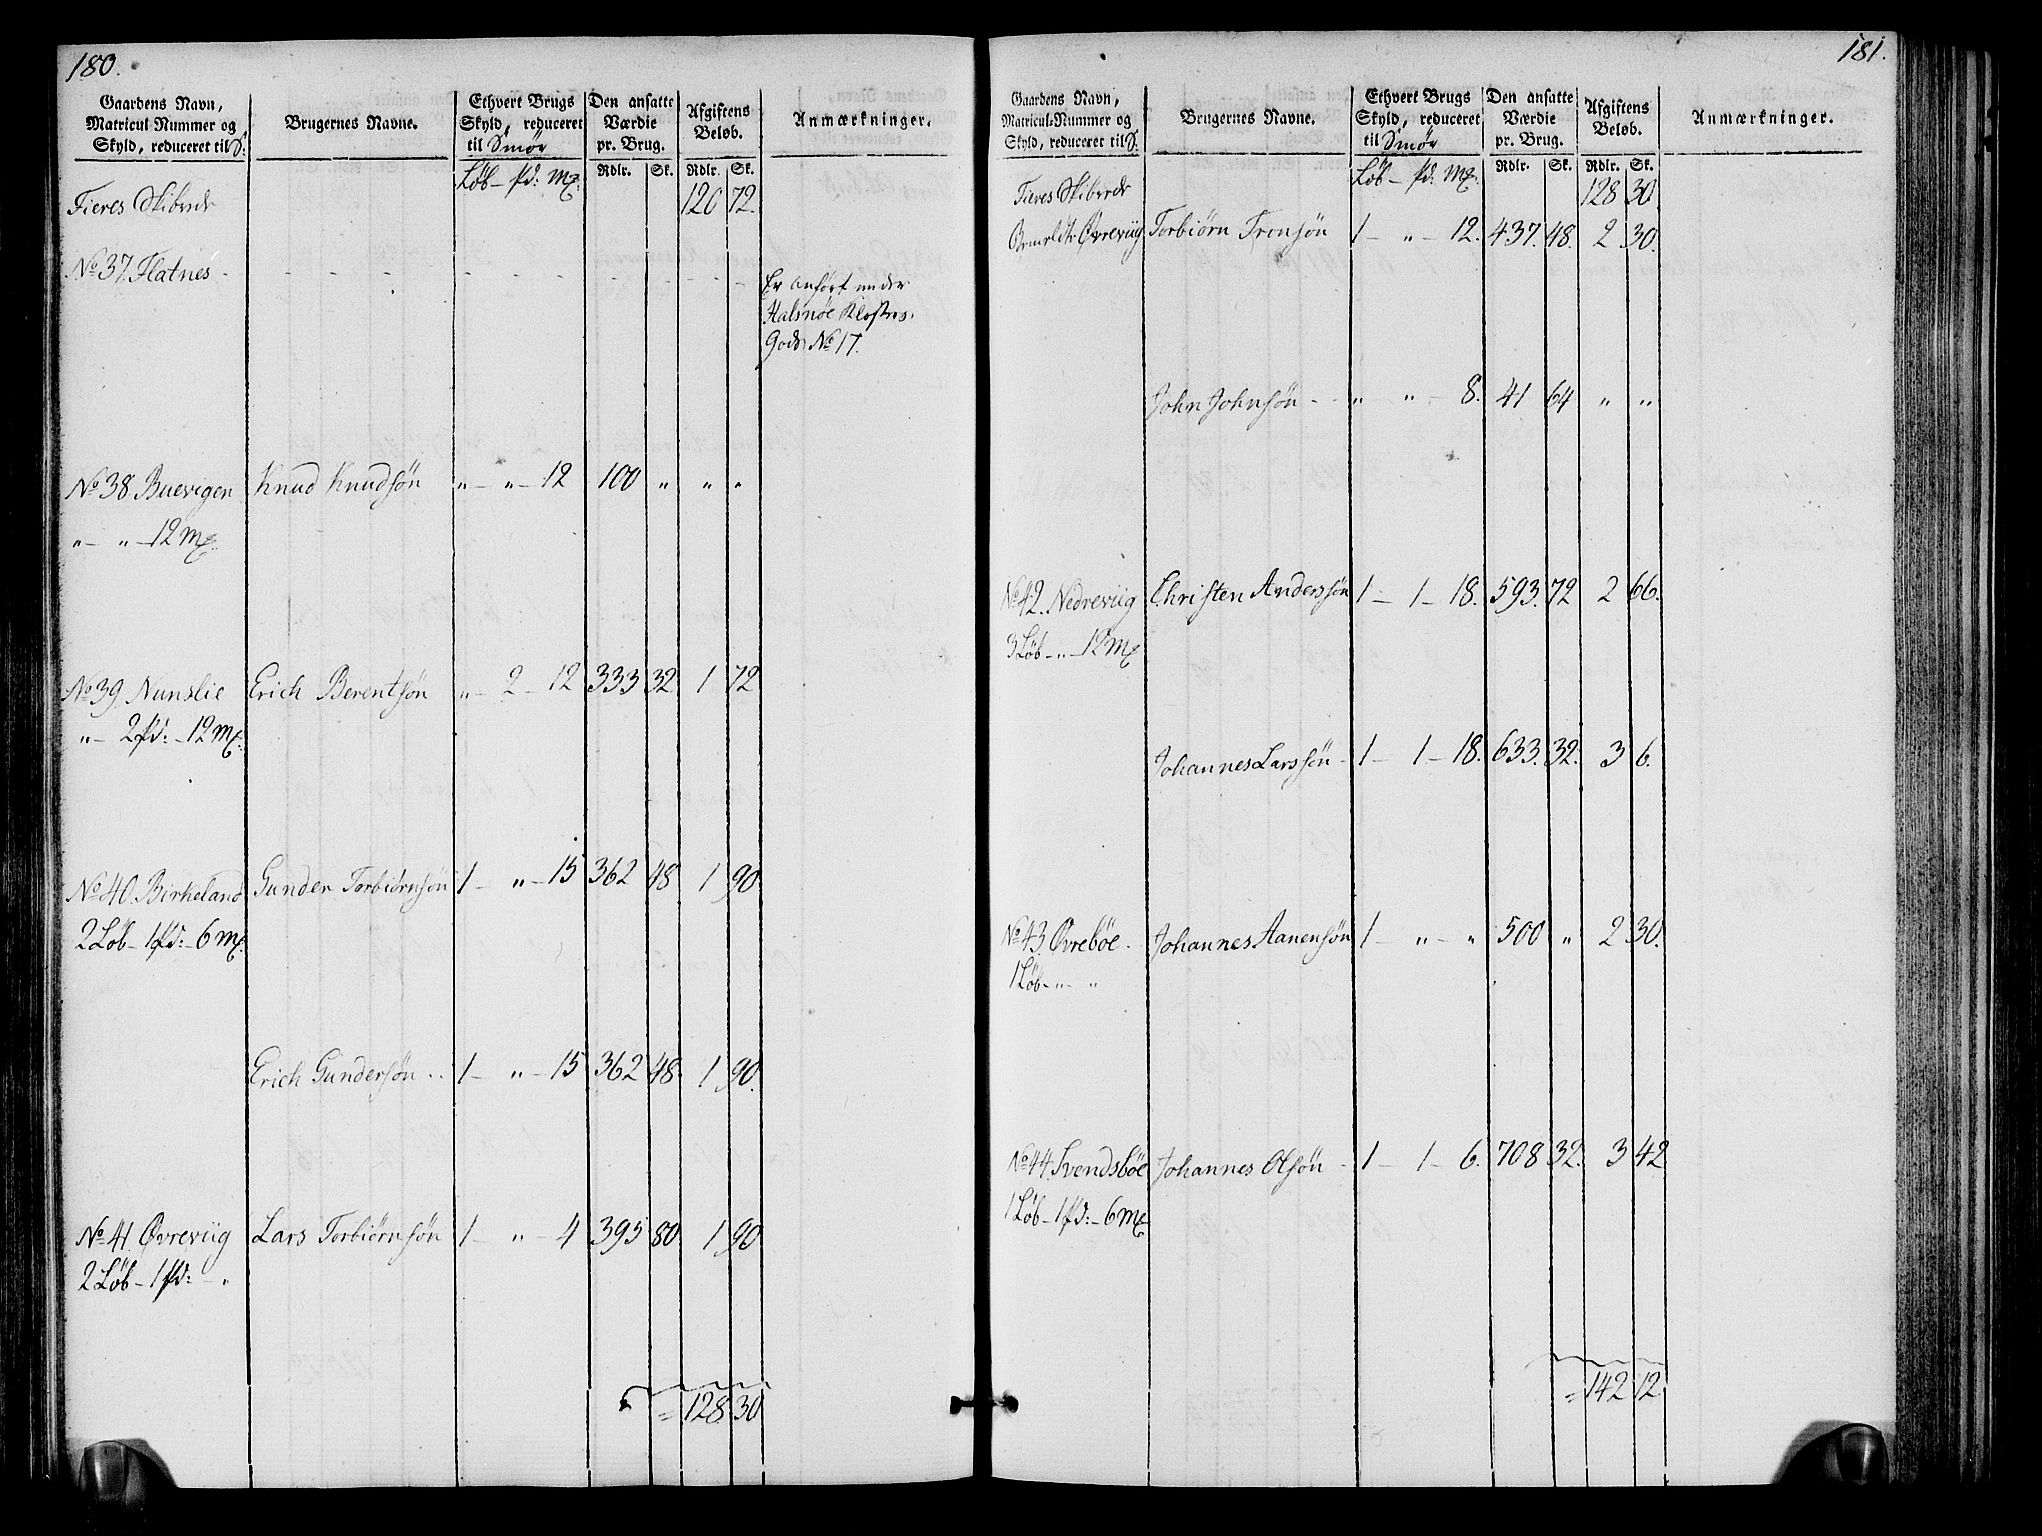 180.
Gaardens Navn, Matricul Nummer og Skyld, reduceret til S. | Brugernes Navne. | Ethvert Brugs Skyld, reduceret til Smör | Den ansatte Værdie pr. Brug. | Afgiftens Beløb. | Anmærkninger.
Løb - pd: mk: | Rdlr. | Sk. | Rdlr. | Sk.
Fieres Skibrede 120 72.
No 37. Flatnes - - - - - - - - - - - - - Er anført under
Halsnöe Klosters
Gods No 17.
No 38 Buevigen Knud Knudsøn " - " - 12 100 " " "
" - " - 12 mk
No 39. Nunslie Erich Berentsøn " - 2 - 12 333 32 1 72
" - 2 pd: - 12 mk:
No 40. Birkeland Gunder Torbiørnsøn 1 - " - 15 362 48 1 90
2 Løb - 1 pd: - 6 mk:
Erich Gundersøn - - 1 - " - 15 362 48. 1 90.
No 41. Øvreviig Lars Torbiørnsøn 1 - " - 4 395 80. 1 90
2 Løb - 1 pd: - "
= 128 30
181.
Gaardens Navn, Matricul-Nummer og Skyld, reduceret til S. | Brugernes Navne. | Ethvert Brugs Skyld, reduceret til Smör | Den ansatte Værdie pr. Brug. | Afgiftens Beløb. | Anmærkninger.
Løb - pd: mk: | Rdlr. | Sk. | Rdlr. | Sk.
Fieres Skibrede 128 30.
Øvreviig Torbiørn Tronsøn 1 - " - 12. 437. 48. 2 30.
John Johnsøn - - " " - 8. 41 64 " "
No 42. Nedreviig Christen Anderssøn 1 - 1 - 18. 593. 72 2 66.
3 Løb - " - 12 mk
Johannes Larssøn - 1 - 1 - 18. 633. 32. 3 6.
No 43. Øvrebøe - Johannes Aanensøn 1 - " - " 500 " 2 30.
1 Løb - " - "
No 44. Svendsbøe Johannes Olsøn - 1 - 1 - 6. 708 32. 3 42
1 Løb - 1 pd: - 6 mk
= 142 12.